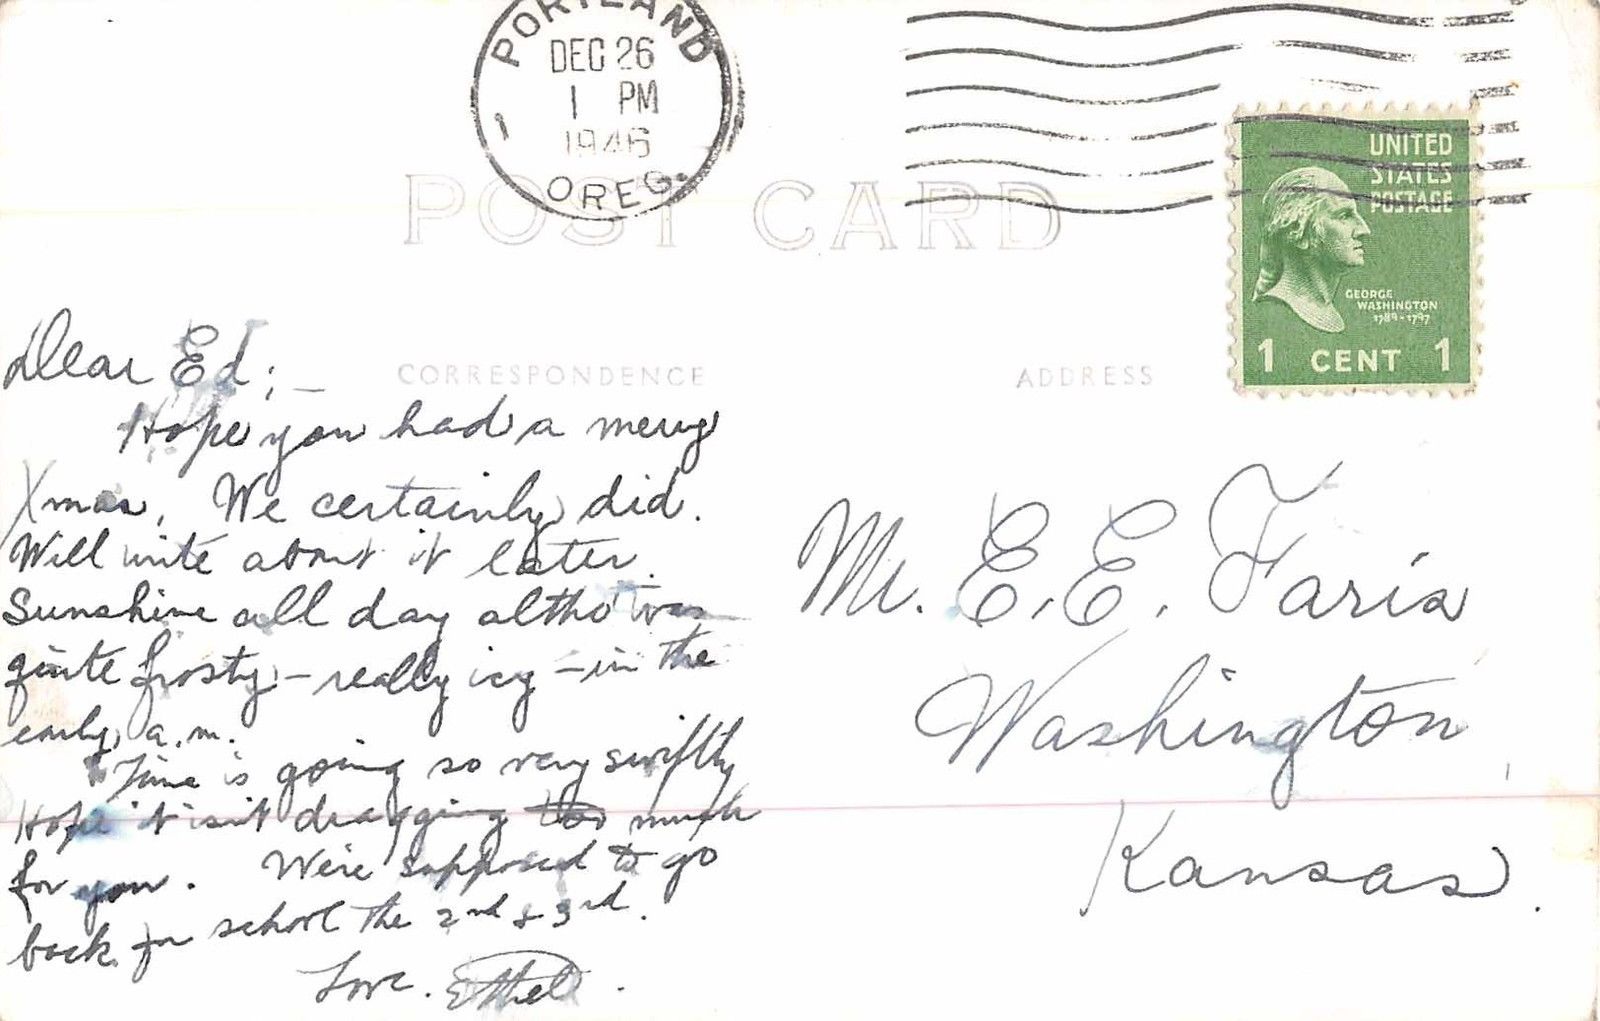 PORTLAND
DEC 26
1 PM
1946
1
OREG.
POST CARD
UNITED
STATES
POSTAGE
GEORGE
WASHINGTON
1789-1797
1 CENT 1
CORRESPONDENCE
ADDRESS
Dear Ed;—
Hope you had a merry
Xmas. We certainly did.
Will write about it later.
Sunshine all day altho 'twas
quite frosty – really icy – in the
early a.m.
Time is going so very swiftly
Hope it isn't dragging too much
for you. We're supposed to go
back for school the 2nd & 3rd.
Love. Ethel.
Mr. E. E. Faris
Washington,
Kansas.